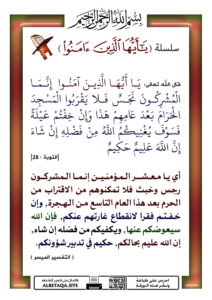 بِسْمِ اللَّهِ الرَّحْمَنِ الرَّحِيمِ
سلسلة ( يَٰٓأَيُّهَا ٱلَّذِينَ ءَامَنُوٓاْ )
قال الله تعالى: يَا أَيُّهَا الَّذِينَ آمَنُوا إِنَّمَا
الْمُشْرِكُونَ نَجَسٌ فَلَا يَقْرَبُوا الْمَسْجِدَ
الْحَرَامَ بَعْدَ عَامِهِمْ هَذَا وَإِنْ خِفْتُمْ عَيْلَةً
فَسَوْفَ يُغْنِيكُمُ اللَّهُ مِنْ فَضْلِهِ إِنْ شَاءَ
إِنَّ اللَّهَ عَلِيمٌ حَكِيمٌ
[التوبة - 28]
أي يا معشر المؤمنين إنما المشركون
رجس وخبث فلا تمكنوهم من الاقتراب من
الحرم بعد هذا العام التاسع من الهجرة، وإن
خفتم فقرا لانقطاع تجارتهم عنكم، فإن الله
سيعوضكم عنها، ويكفيكم من فضله إن شاء،
إن الله عليم بحالكم، حكيم في تدبير شؤونكم.
( التفسير الميسر )
احرص على طباعة
ونشر هذه الورقة
ALBETAQA.SITE